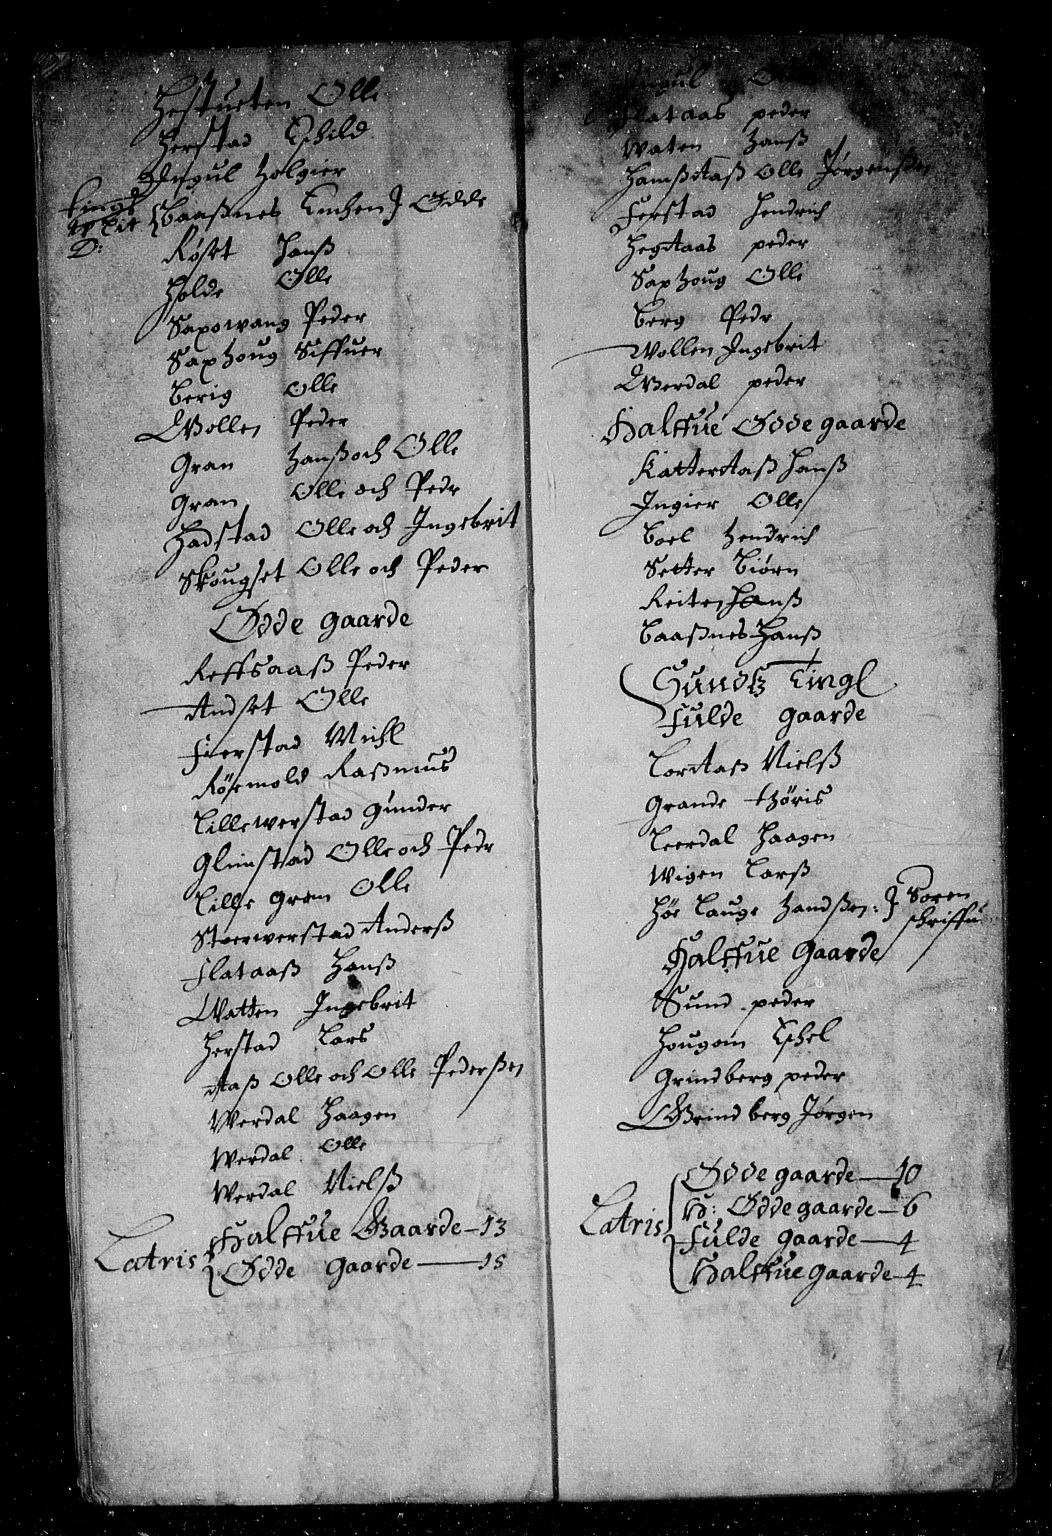 Hestueten Olle
Herstad Eschild
Ingul Holgier
Baaßnes Enchen J Odde
D:
Røset Hanß
Holde Olle
Saxowang Peder
Saxhoug Siffuer
Berig Olle
Wollen Peder
Gran Hanß och Olle
Gran Olle och Pedr
Hadstad Olle och Ingebrit
Skougset Olle och Peder
Ødde gaarde
Reffsaaß Peder
Andset Olle
Fierstad Michl
Rösemold Raßmus
Lillewerstad Gunder
Glimstad Olle och Pedr
Lille Gran Olle
Stoerwerstad Anderß
Flataaß Hanß
Watten Ingebrit
Herstad Lars
Aaß Olle och Olle Pederßen
Werdal Haagen
Werdal Olle
Werdal Nielß
Latris
Halffue Gaarde 13
Ødde gaarde 18
Ingul
Flataas peder
Waten Hanß
Hamßaaß Olle Jørgenßen
Ferstad Hendrich
Hegaas peder
Saxhoug Olle
Berg Pedr
Wollen Ingebrit
Werdal peder
Halffue Ødde gaarde
Katteraaß Hanß
Ingier Olle
Boel Hendrich
Setter Biørn
Reiten Hanß
Baaßnes Hanß
Sundtz Tingl
Fulde gaarde
Loraaß Nielß
Grande thøris
Leerdal Haagen
Wigen Larß
Høe Lauge Handßen: Soren
schriffu
Halffue Gaarde
Sund peder
Hougom Eschel
Grindberg peder
Grindberg Jørgen
Latris
Ødde gaarde 10
H: Ødde gaarde 6
Fulde gaarde 4
Halffue gaarde 4